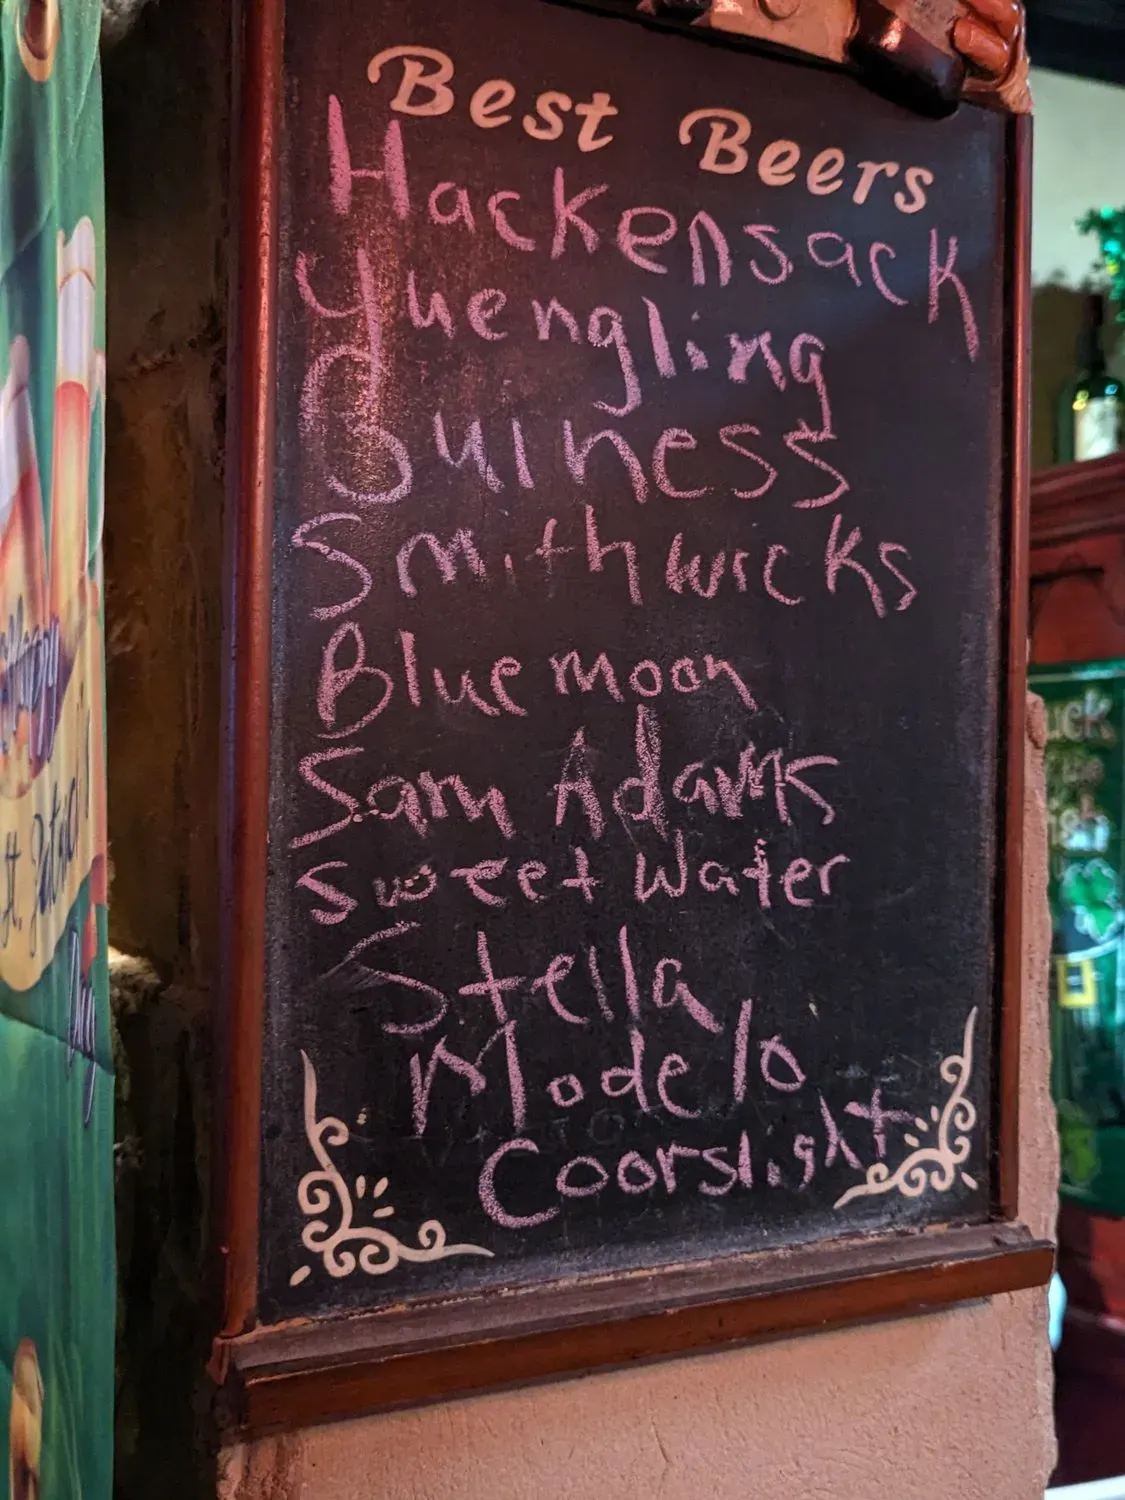 Best Beers
Hackensack
Yuengling
Guiness
Smithwicks
Blue moon
Sam Adams
Sweet Water
Stella
Modelo
Coorslight
St. Patrick's
Day